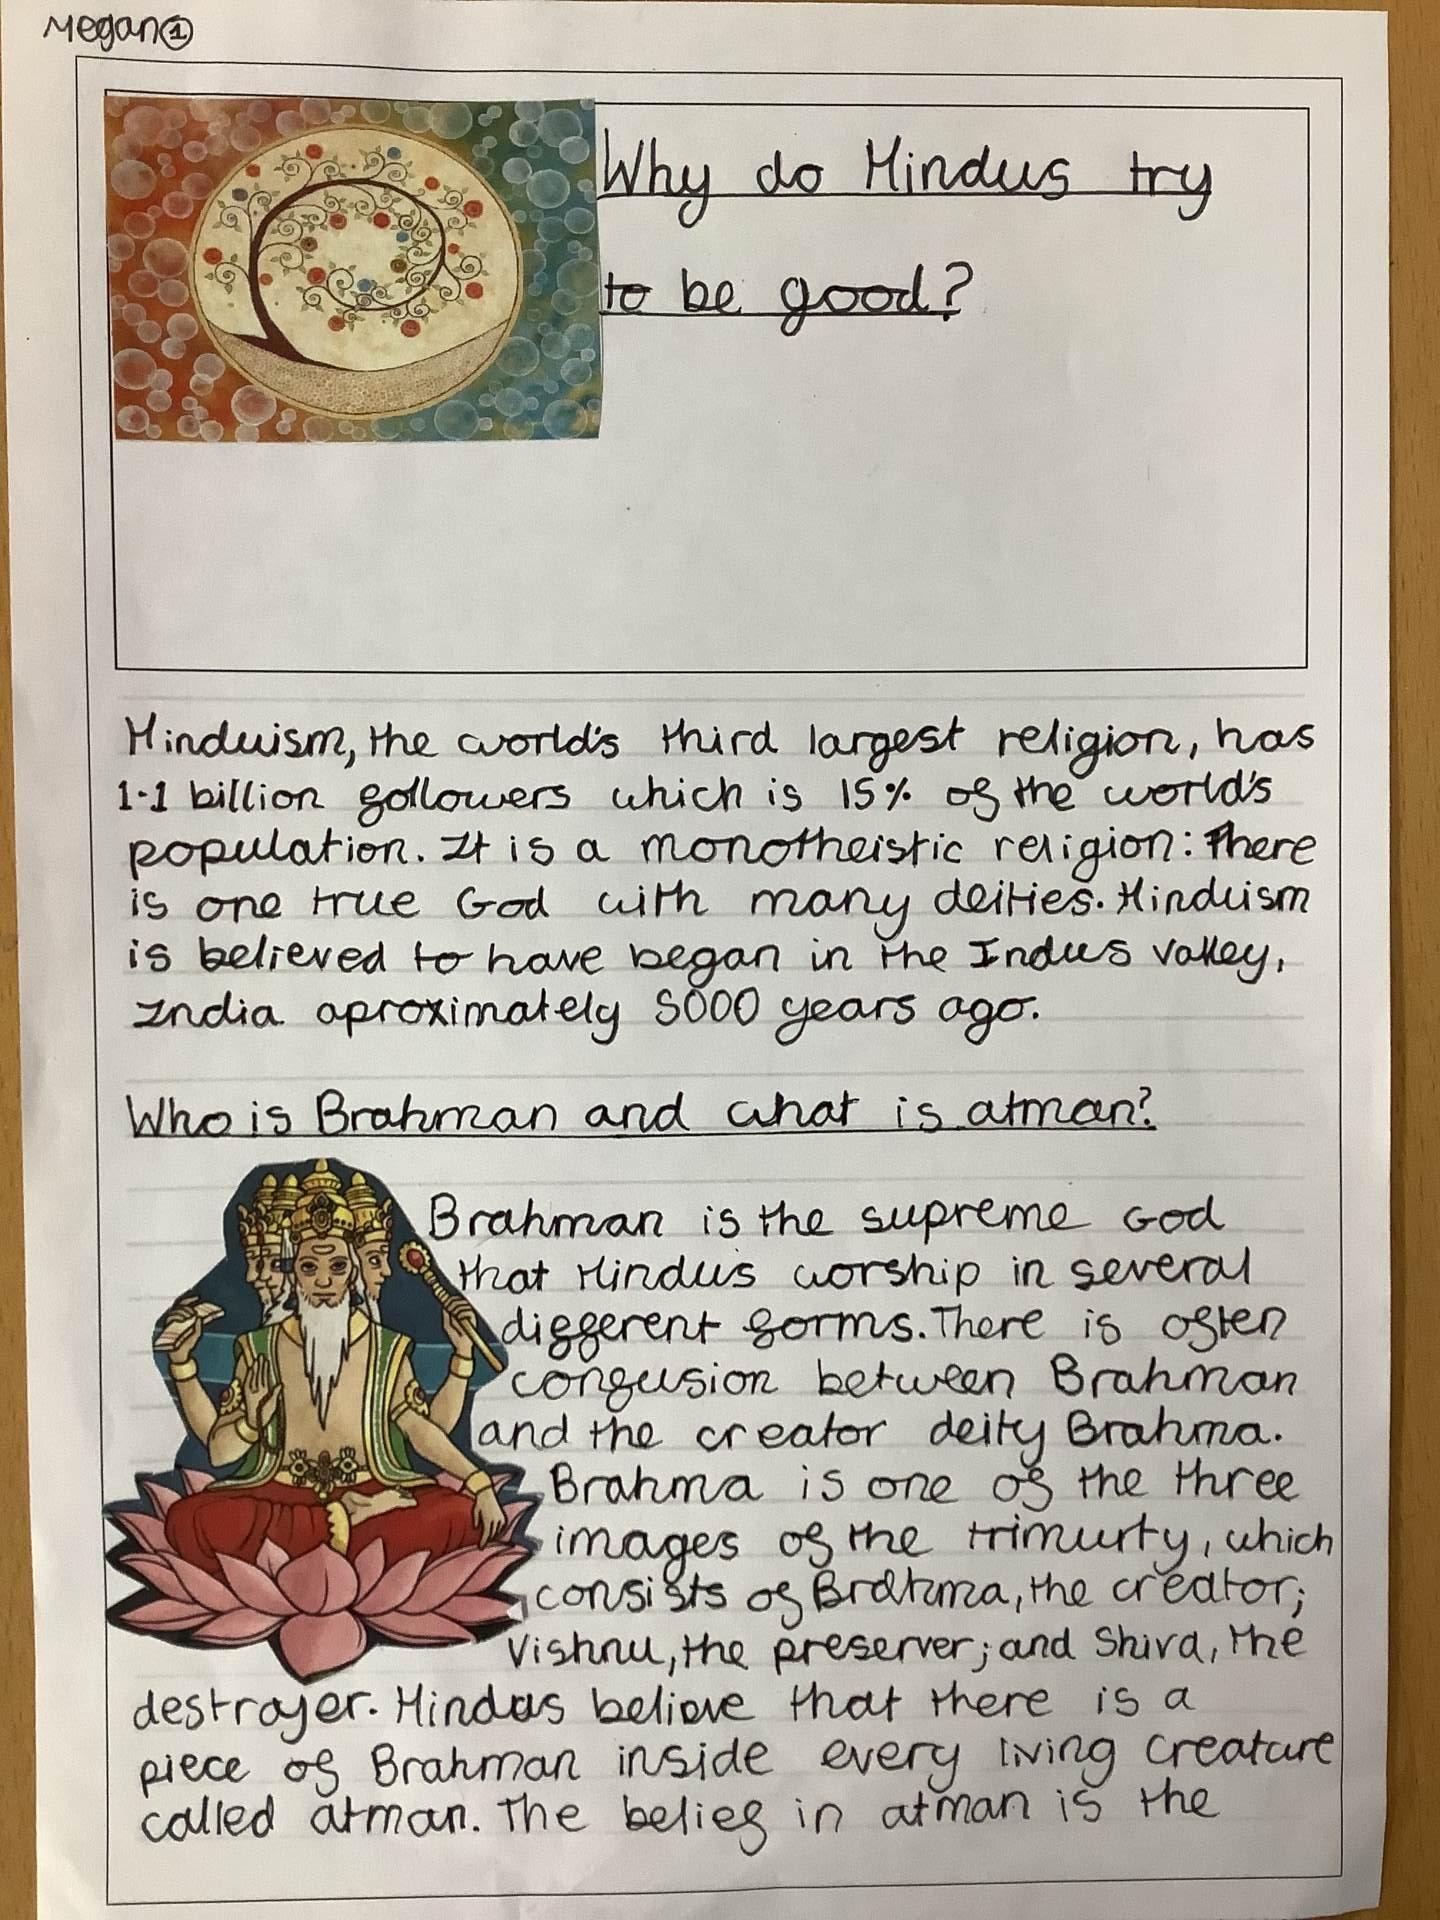 Megan①
Why do Hindus try
to be good?
Hinduism, the world's third largest religion, has
1.1 billion followers which is 15% of the world's
population. It is a monotheistic religion: There
is one true God with many deities. Hinduism
is believed to have began in the Indus valley,
India aproximately 5000 years ago.
Who is Brahman and what is atman?
Brahman is the supreme God
that Hindus worship in several
different forms. There is often
confusion between Brahman
and the creator deity Brahma.
Brahma is one of the three
images of the trimurty, which
consists of Brahma, the creator;
Vishnu, the preserver; and Shiva, the
destroyer. Hindus believe that there is a
piece of Brahman inside every living creature
called atman. The belief in atman is the